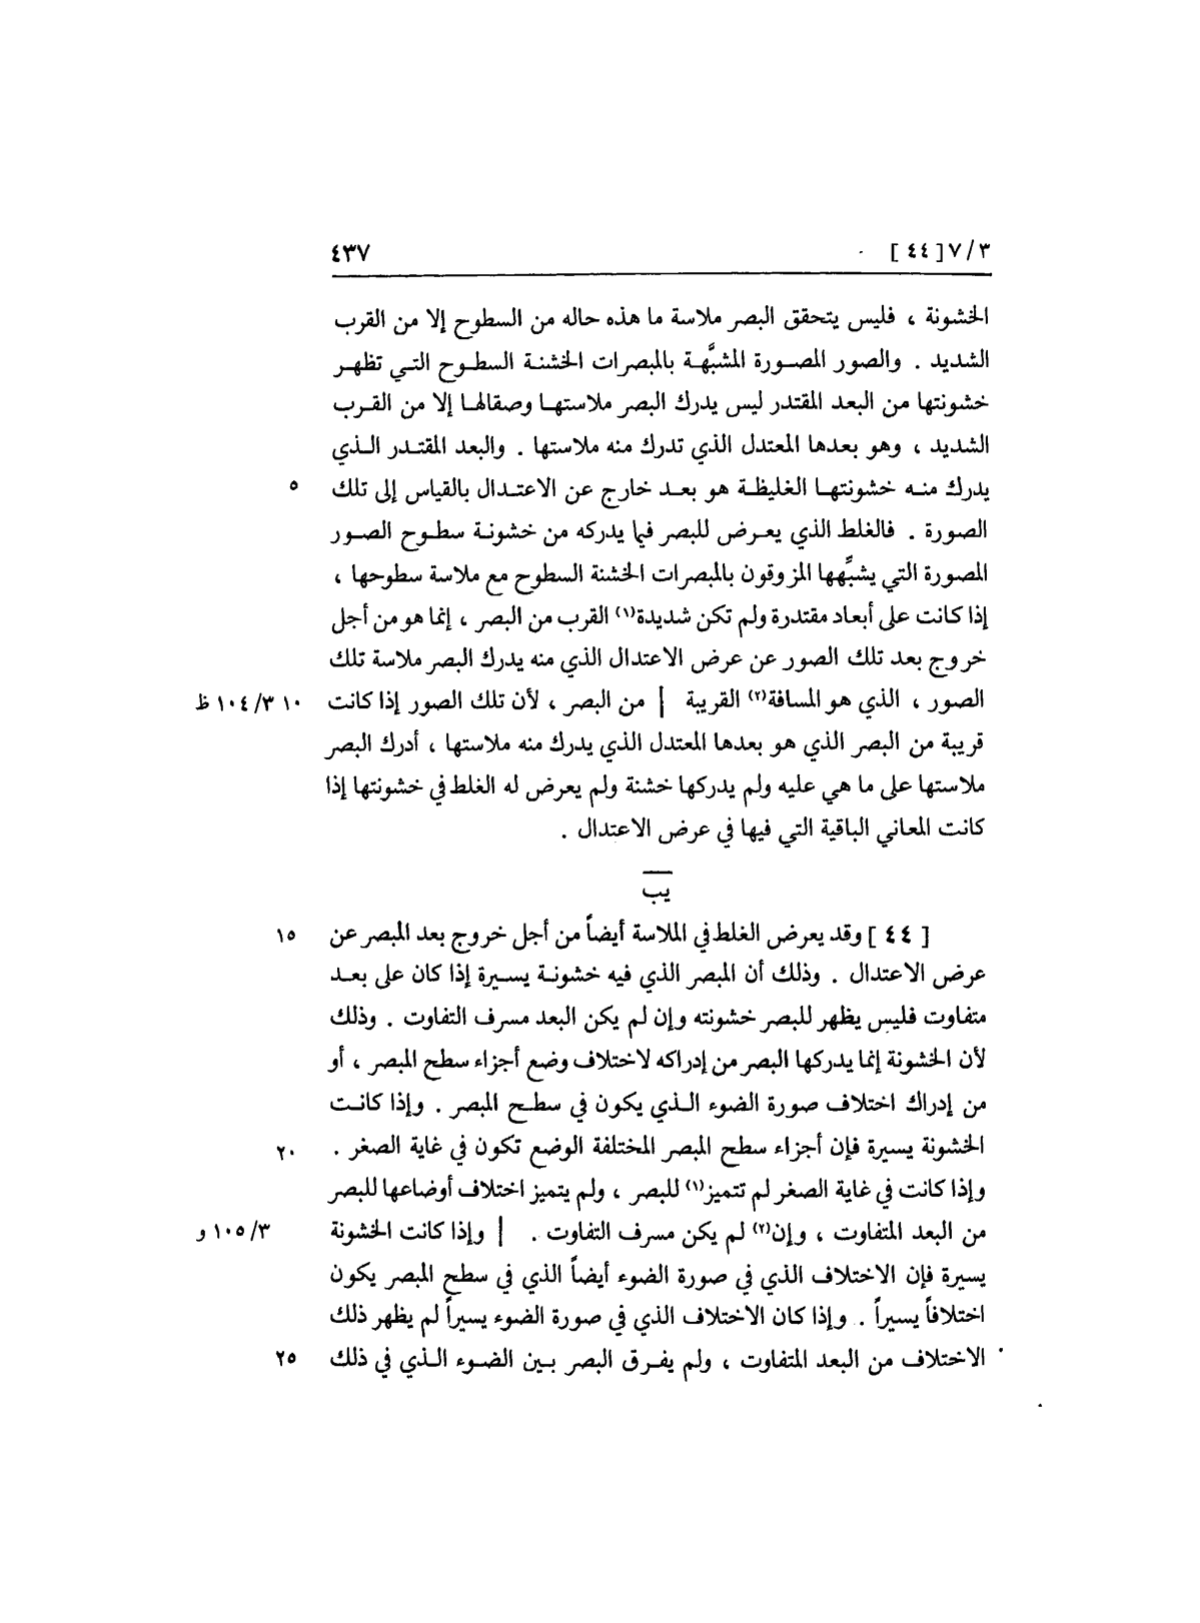 ٣/٧[٤٤] ٤٣٧
الخشونة ، فليس يتحقق البصر ملاسة ما هذه حاله من السطوح إلا من القرب
الشديد . والصور المصورة المشبَّهة بالمبصرات الخشنة السطوح التي تظهر
خشونتها من البعد المقتدر ليس يدرك البصر ملاستها وصقالها إلا من القرب
الشديد ، وهو بعدها المعتدل الذي تدرك منه ملاستها . والبعد المقتدر الذي
يدرك منه خشونتها الغليظة هو بعد خارج عن الاعتدال بالقياس إلى تلك ٥
الصورة . فالغلط الذي يعرض للبصر فيما يدركه من خشونة سطوح الصور
المصورة التي يشبِّهها المزوقون بالمبصرات الخشنة السطوح مع ملاسة سطوحها ،
إذا كانت على أبعاد مقتدرة ولم تكن شديدة(١) القرب من البصر ، إنما هو من أجل
خروج بعد تلك الصور عن عرض الاعتدال الذي منه يدرك البصر ملاسة تلك
الصور ، الذي هو المسافة(٢) القريبة | من البصر ، لأن تلك الصور إذا كانت ١٠ ١٠٤/٣ ظ
قريبة من البصر الذي هو بعدها المعتدل الذي يدرك منه ملاستها ، أدرك البصر
ملاستها على ما هي عليه ولم يدركها خشنة ولم يعرض له الغلط في خشونتها إذا
كانت المعاني الباقية التي فيها في عرض الاعتدال .
يب
[٤٤] وقد يعرض الغلط في الملاسة أيضاً من أجل خروج بعد المبصر عن ١٥
عرض الاعتدال . وذلك أن المبصر الذي فيه خشونة يسيرة إذا كان على بعد
متفاوت فليس يظهر للبصر خشونته وإن لم يكن البعد مسرف التفاوت . وذلك
لأن الخشونة إنما يدركها البصر من إدراكه لاختلاف وضع أجزاء سطح المبصر ، أو
من إدراك اختلاف صورة الضوء الذي يكون في سطح المبصر . وإذا كانت
الخشونة يسيرة فإن أجزاء سطح المبصر المختلفة الوضع تكون في غاية الصغر . ٢٠
وإذا كانت في غاية الصغر لم تتميز(١) للبصر ، ولم يتميز اختلاف أوضاعها للبصر
من البعد المتفاوت ، وإن(٢) لم يكن مسرف التفاوت . | وإذا كانت الخشونة ١٠٥/٣ و
يسيرة فإن الاختلاف الذي في صورة الضوء أيضاً الذي في سطح المبصر يكون
اختلافاً يسيراً . وإذا كان الاختلاف الذي في صورة الضوء يسيراً لم يظهر ذلك
الاختلاف من البعد المتفاوت ، ولم يفرق البصر بين الضوء الذي في ذلك ٢٥